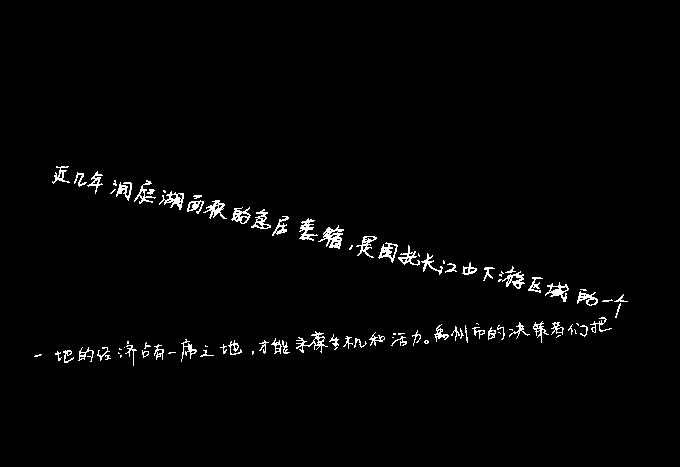 近几年洞庭湖面积的急居萎缩，是困扰长江中下游区域的一个
一地的经济占有一席之地，才能永葆生机和活力。禹州市的决策者们把